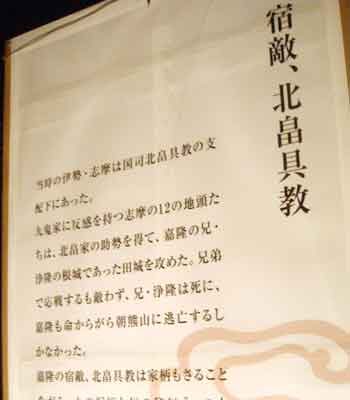 宿敵、北畠具教
当時の伊勢・志摩は国司北畠具教の支
配下にあった。
九鬼家に反感を持つ志摩の12の地頭た
ちは、北畠家の助勢を得て、嘉隆の兄・
浄隆の根城であった田城を攻めた。兄弟
で応戦するも敵わず、兄・浄隆は死に、
嘉隆も命からがら朝熊山に逃亡するし
かなかった。
嘉隆の宿敵、北畠具教は家柄もさること